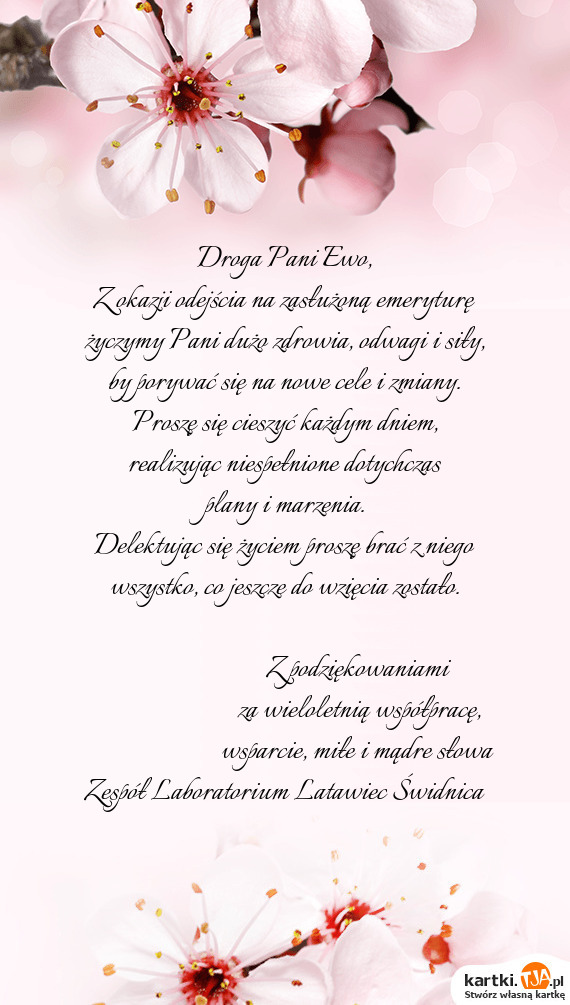 Droga Pani Ewo,
Z okazji odejścia na zasłużoną emeryturę
życzymy Pani dużo zdrowia, odwagi i siły,
by porywać się na nowe cele i zmiany.
Proszę się cieszyć każdym dniem,
realizując niespełnione dotychczas
plany i marzenia.
Delektując się życiem proszę brać z niego
wszystko, co jeszcze do wzięcia zostało.
Z podziękowaniami
za wieloletnią współpracę,
wsparcie, miłe i mądre słowa
Zespół Laboratorium Latawiec Świdnica
kartki.TJA.pl
Stwórz własną kartkę